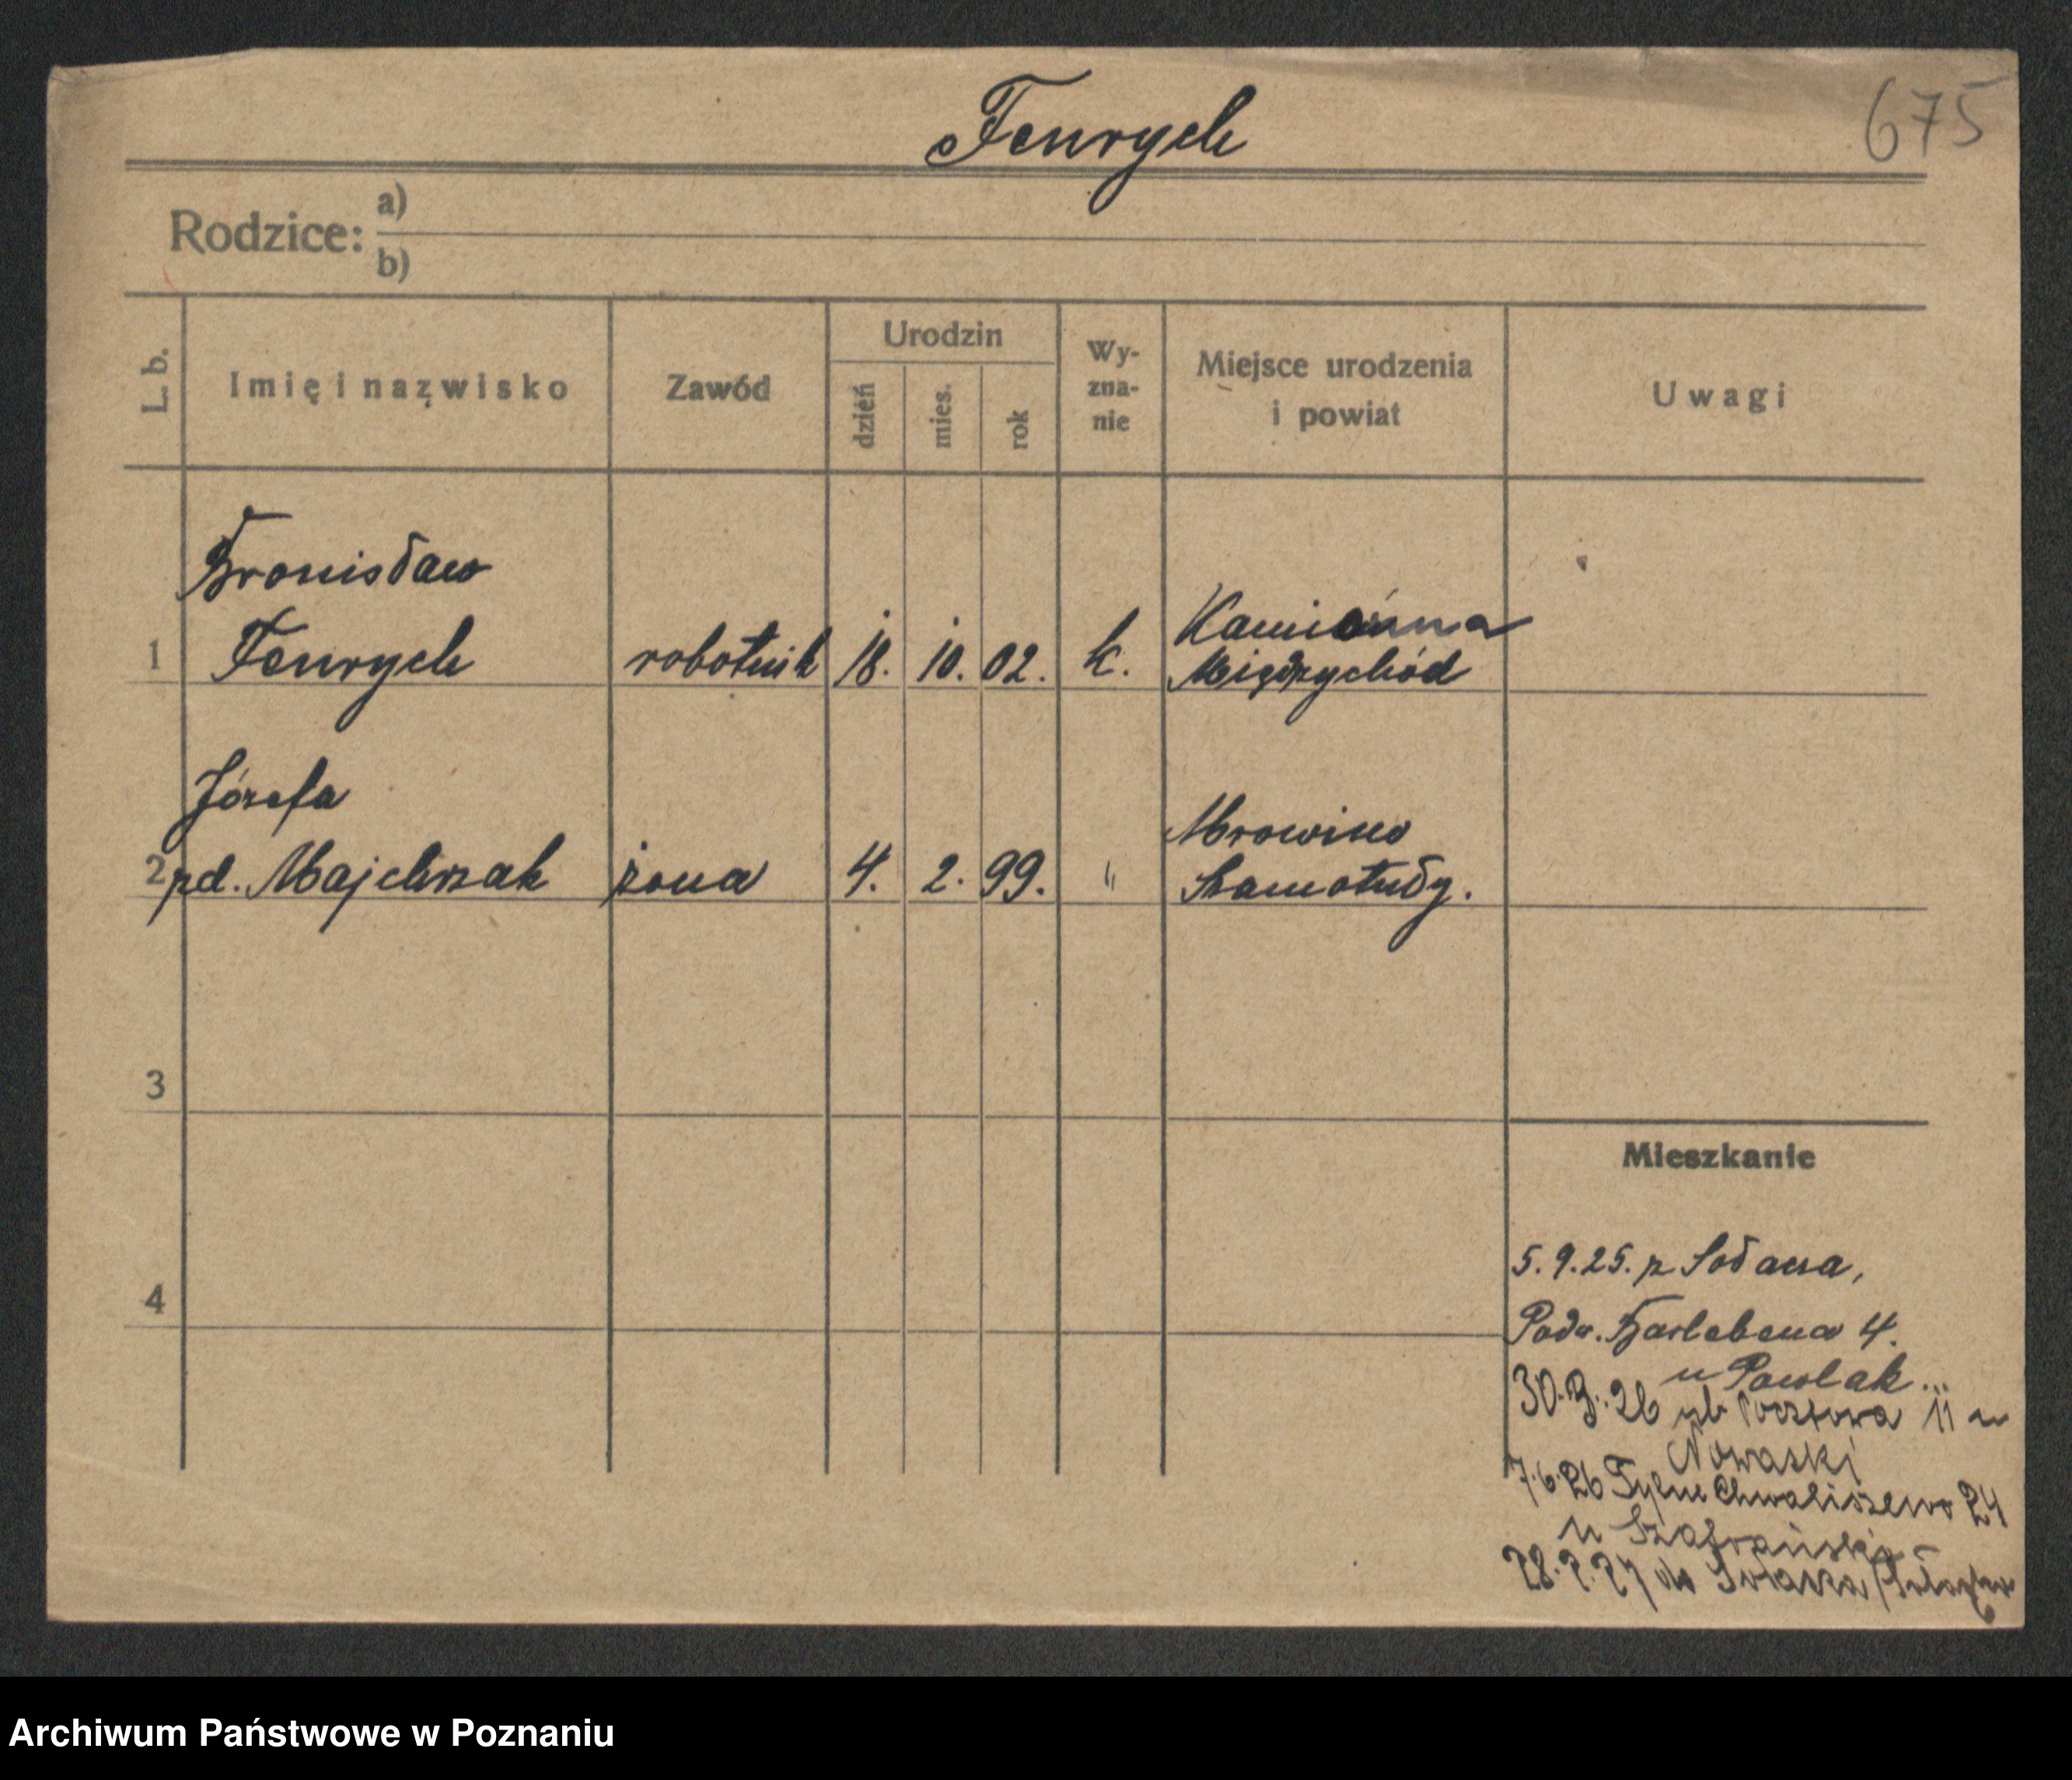 Fenrych
675
Rodzice: a)
b)
L. b.
Imię i nazwisko
Zawód
Urodzin
dzień
mies.
rok
Wy-
zna-
nie
Miejsce urodzenia
i powiat
Uwagi
Bronisław
1 Fenrych robotnik 18. 10. 02. k. Kamionna
Międzychód
Józefa
2 zd. Majchrzak żona 4. 2. 99. " Mrowino
Szamotuły.
3
4
Mieszkanie
5.9.25. z Sołacza,
Podw. Garbary 4.
u Pawlak
30. 26 Pocztowa 11 u
Nowaski
7.6.26 Tylne Chwaliszewo 24
u Szafrański
28.2.27 do Sołacza
Archiwum Państwowe w Poznaniu